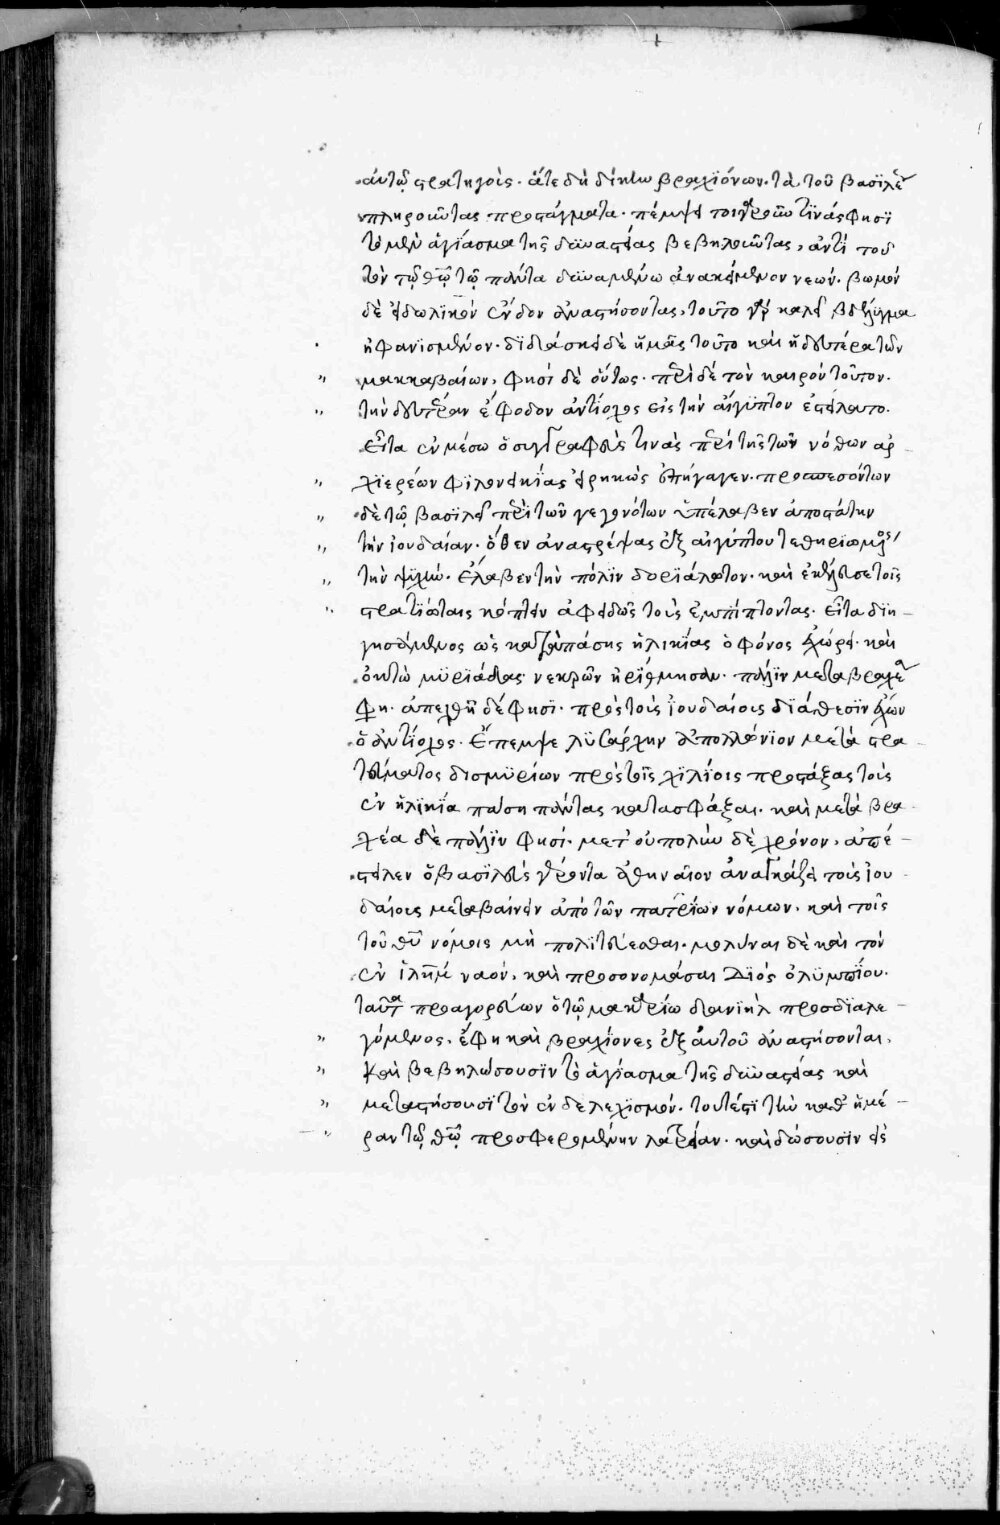 αὐτῷ στρατηγοῖς· ἅτε δὴ δίκην βραχϊόνων· τὰ τοῦ βασϊλέως
πληροῦντας προστάγματα· πέμψει τοιγαροῦν τϊνάς φησϊ
τὸ μὲν ἁγίασμα τῆς δυναστείας βεβηλοῦντας, ἀντὶ τοῦ
τὸν τῷ θῷ τῷ πάντα δυναμένω ἀνακείμενον νεών· βωμὸν
δὲ εἰδωλϊκὸν ἔνδον ἀναστήσοντας, τοῦτο γὰρ καλεῖ βδέλυγμα
ἠφανϊσμένον· δϊδάσκει δὲ ἡμᾶς τοῦτο καὶ ἡ δευτέρα τῶν
μακκαβαίων, φησὶ δὲ οὕτως· περὶ δὲ τὸν καιρὸν τοῦτον·
τὴν δευτέραν ἔφοδον ἀντίοχος εἰς τὴν αἴγυπτον ἐστείλατο·
εἶτα ἐν μέσω ὁ συγγραφεὺς τινὰς περὶ τῆς τῶν νόθων ἀρ‐
χϊερέων φϊλονεικΐας εἰρηκὼς ἐπήγαγεν· προσπεσόντων
δὲ τῷ βασϊλεῖ περὶ τῶν γεγονότων ὑπέλαβεν ἀποστάτην
τὴν ἰουδαίαν· ὅθεν ἀναστρέψας ἐξ αἰγύπτου τεθηρϊωμένος
τὴν ψϋχὴν· ἔλαβεν τὴν πόλϊν δορϊάλωτον· καὶ ἐκέλευσε τοῖς
στρατϊώταις κόπτειν ἀφειδῶς τοὺς ἐμπίπτοντας· εἶτα δϊη‐
γησάμενος ὡς κατὰ πάσης ἡλικΐας ὁ φόνος ἐχώρει· καὶ
ὀκτὼ μϋρϊάδας νεκρῶν ἠρίθμησαν· πάλϊν μετὰ βραχέα
φη· ἀπεχθῆ δέ φησϊ· πρὸς τοὺς ἰουδαίους δϊάθεσϊν ἔχων
ὁ ἀντίοχος· ἔπεμψε λϋσάρχην ἀπολλώνϊον μετὰ στρα‐
τεύματος δισμϋρίων πρὸς τοῖς χϊλίοις προστάξας τοὺς
ἐν ἡλϊκία πάση πάντας κατασφάξαι· καὶ μετὰ βρα‐
χέα δὲ πάλϊν φησί· μετ᾽ οὐ πολὺν δὲ χρόνον, ἀπέ‐
στειλεν ὁ βασϊλεὺς γέροντα ἀθηναῖον ἀναγκάζει τοὺς ἰου‐
δαίους μεταβαίνειν ἀπὸ τῶν πατρίων νόμων, καὶ τοῖς
τοῦ θῦ νόμοις μὴ πολϊτεύεσθαι· μολῦναι δὲ καὶ τὸν
ἐν ἱλημ ναόν, καὶ προσονομάσαι Δϊὸς ὀλϋμπΐου·
ταῦτα προαγορεύων ὁ τῷ μακαρίω δανϊὴλ προσδϊαλε‐
γόμενος, ἔφη καὶ βραχίονες ἐξ αὐτοῦ ἀναστήσονται,
καὶ βεβηλώσουσϊν τὸ ἁγίασμα τῆς δυναστείας καὶ
μεταστήσουσϊ τὸν ἐνδελεχϊσμόν· τουτέστϊ τὴν καθ᾽ ἡμέ‐
ραν τῷ θῷ προσφερομένην λατρείαν· καὶ δώσουσϊν εἰς